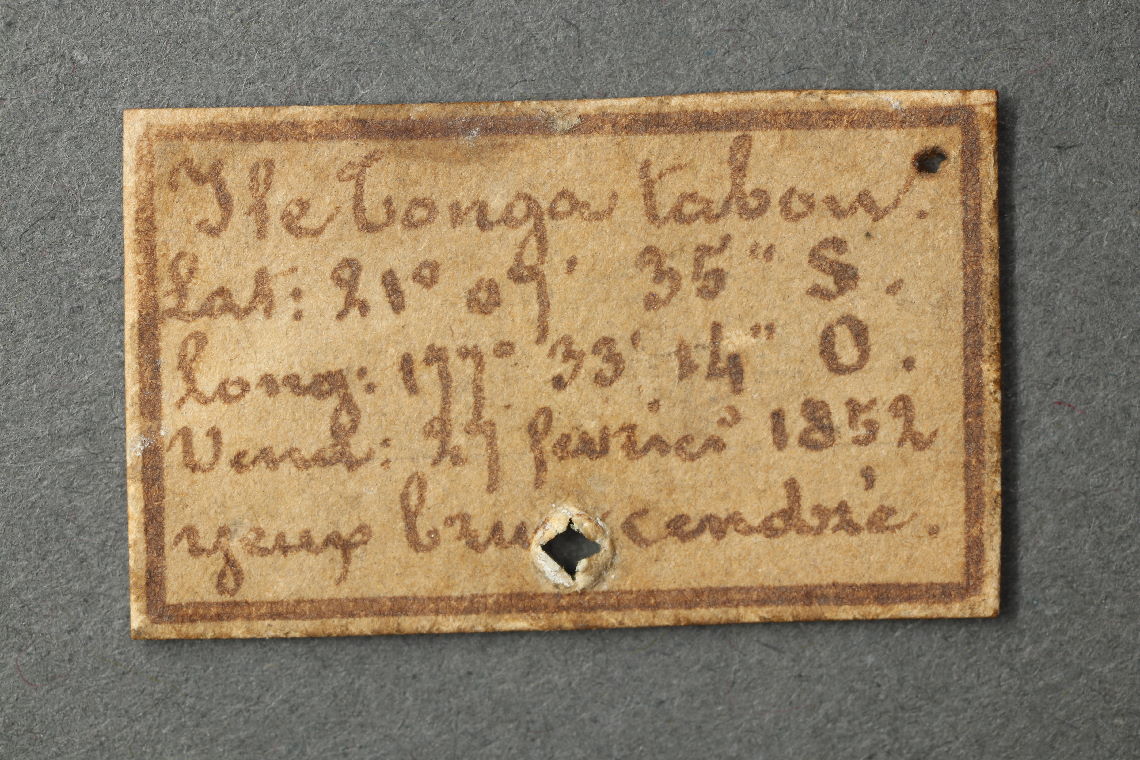 Ile Tonga tabou.
Lat: 21° 09' 35" S.
long: 177° 33' 14" O.
Vend: 27 fevrier 1852
yeux cendré.